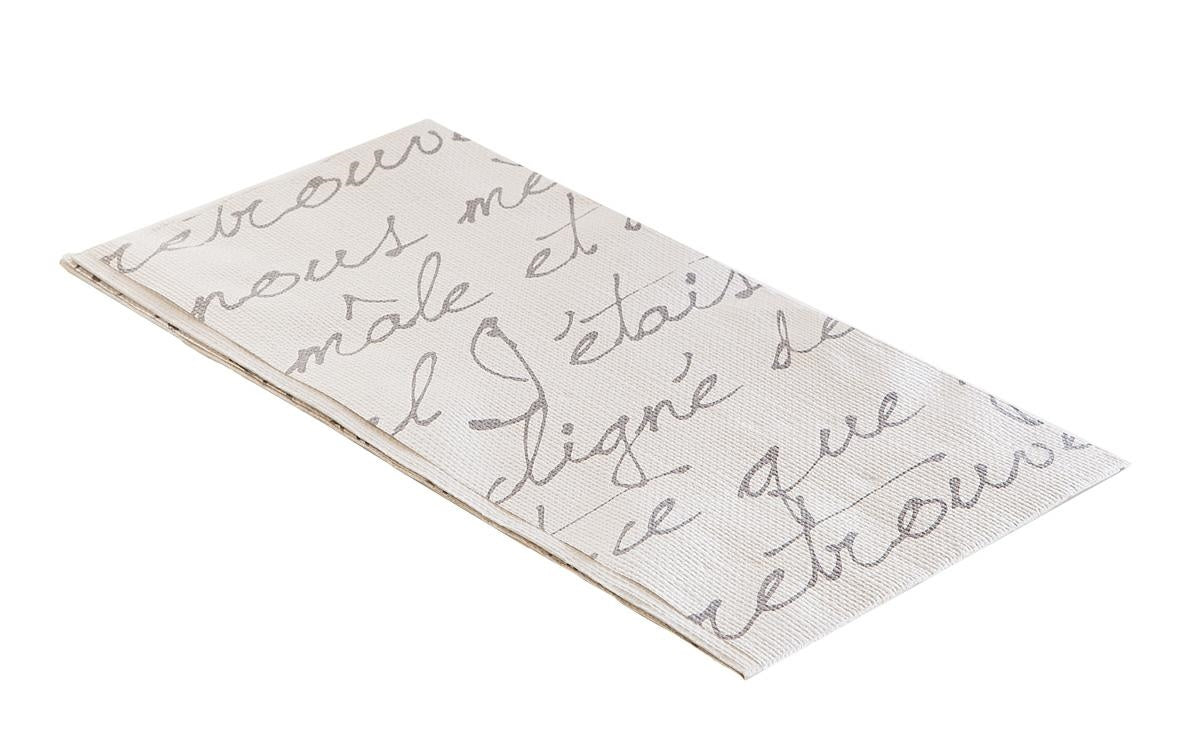 retrouve
nous mê
mâle et
l j'étais
cligné de
ce que
retrouve